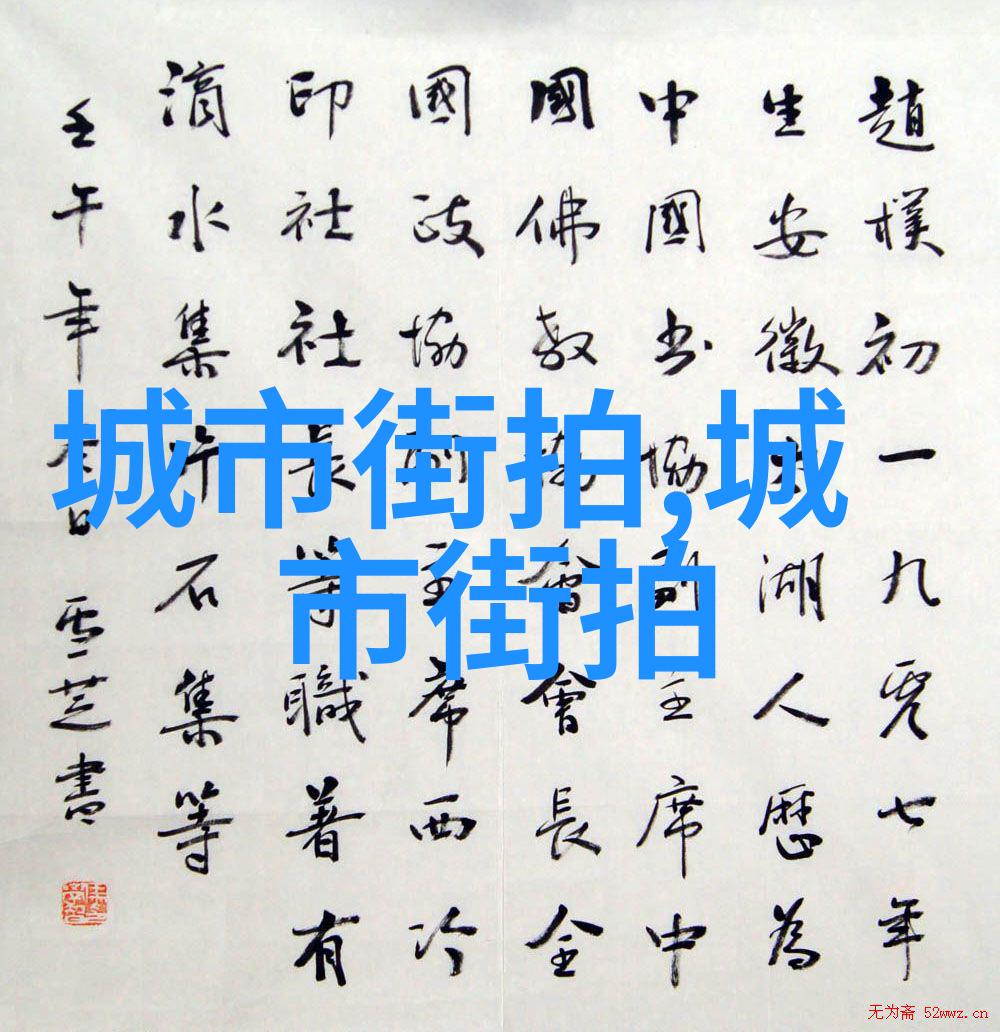 趙樸初一九零七年
生安徽太湖人歷為
中國書協副主席中
國佛教協會會長全
國政協副主席西泠
印社社長等職著有
滴水集片石集等
壬午年春日雪芝書
城市街拍,城
市街拍
无为斋 52wwz.cn